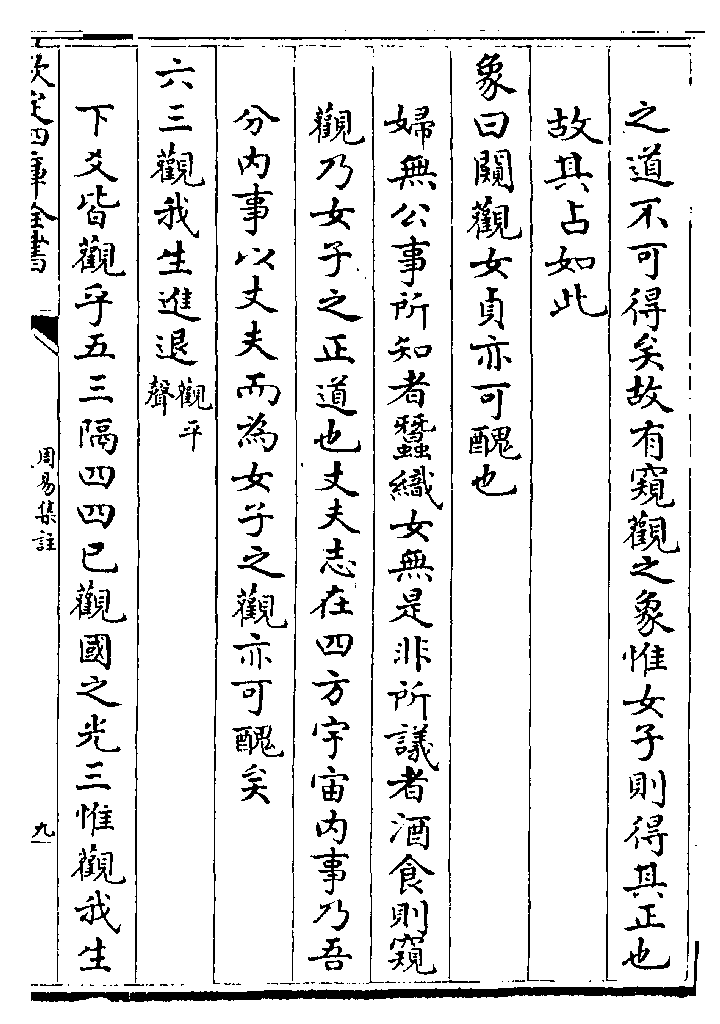 之道不可得矣故有窺觀之象惟女子則得其正也
故其占如此
象曰闚觀女貞亦可醜也
婦無公事所知者蠶織女無是非所議者酒食則窺
觀乃女子之正道也丈夫志在四方宇宙内事乃吾
分内事以丈夫而為女子之觀亦可醜矣
六三觀我生進退觀平聲
下爻皆觀乎五三隔四四已觀國之光三惟觀我生
欽定四庫全書
周易集註
九